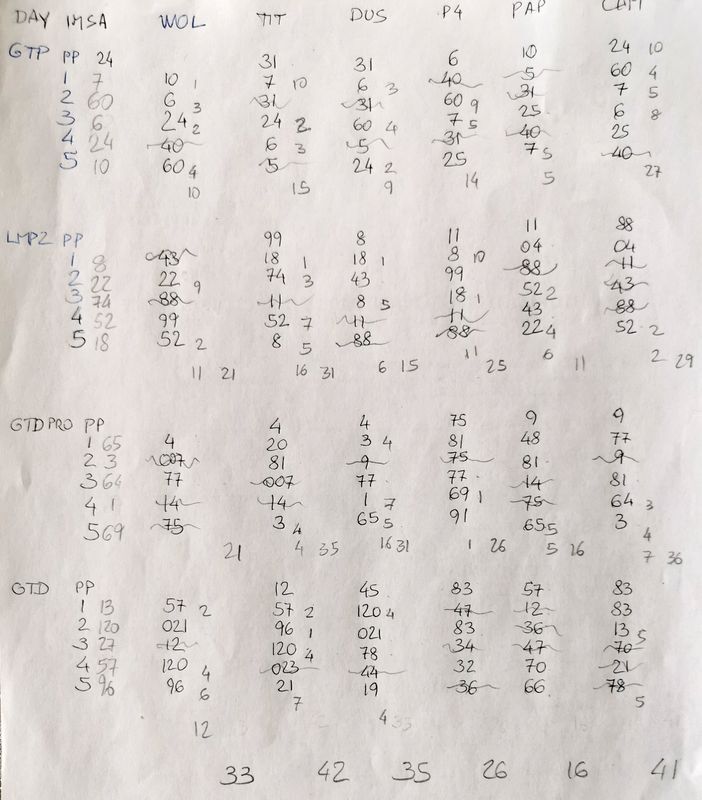 DAY IMSA WOL TIT DUS P4 PAP
GTP PP 24 31 31 6 10 24 10
1 7 10 1 7 10 6 3 40 5 60 4
2 60 6 3 31 31 60 9 31 7 5
3 6 24 2 24 2 60 4 7 5 25 6 8
4 24 40 6 3 5 31 40 25
5 10 60 4 5 24 2 25 7 5 40
10 15 9 14 5 27
LMP2 PP 99 8 11 11 88
1 8 43 18 1 18 1 8 10 04 04
2 22 22 9 74 3 43 99 88 11
3 74 88 11 8 5 18 1 52 2 43
4 52 99 52 7 11 11 43 88
5 18 52 2 8 5 88 88 22 4 52 2
11 21 16 31 6 15 11 25 6 11 2 29
GTD PRO PP 4 4 75 9 9
1 65 4 20 3 4 81 48 77
2 3 007 81 9 75 81 9
3 64 77 007 77 77 14 81
4 1 14 14 1 7 69 1 75 64 3
5 69 75 3 4 65 5 91 65 5 3 4
21 4 35 16 31 1 26 5 16 7 36
GTD PP 12 45 83 57 83
1 13 57 2 57 2 120 4 47 12 83
2 120 021 96 1 021 83 36 13 5
3 27 12 120 4 78 34 47 70
4 57 120 4 023 44 32 70 21
5 96 96 6 21 7 19 36 66 78
12 4 33 5
33 42 35 26 16 41